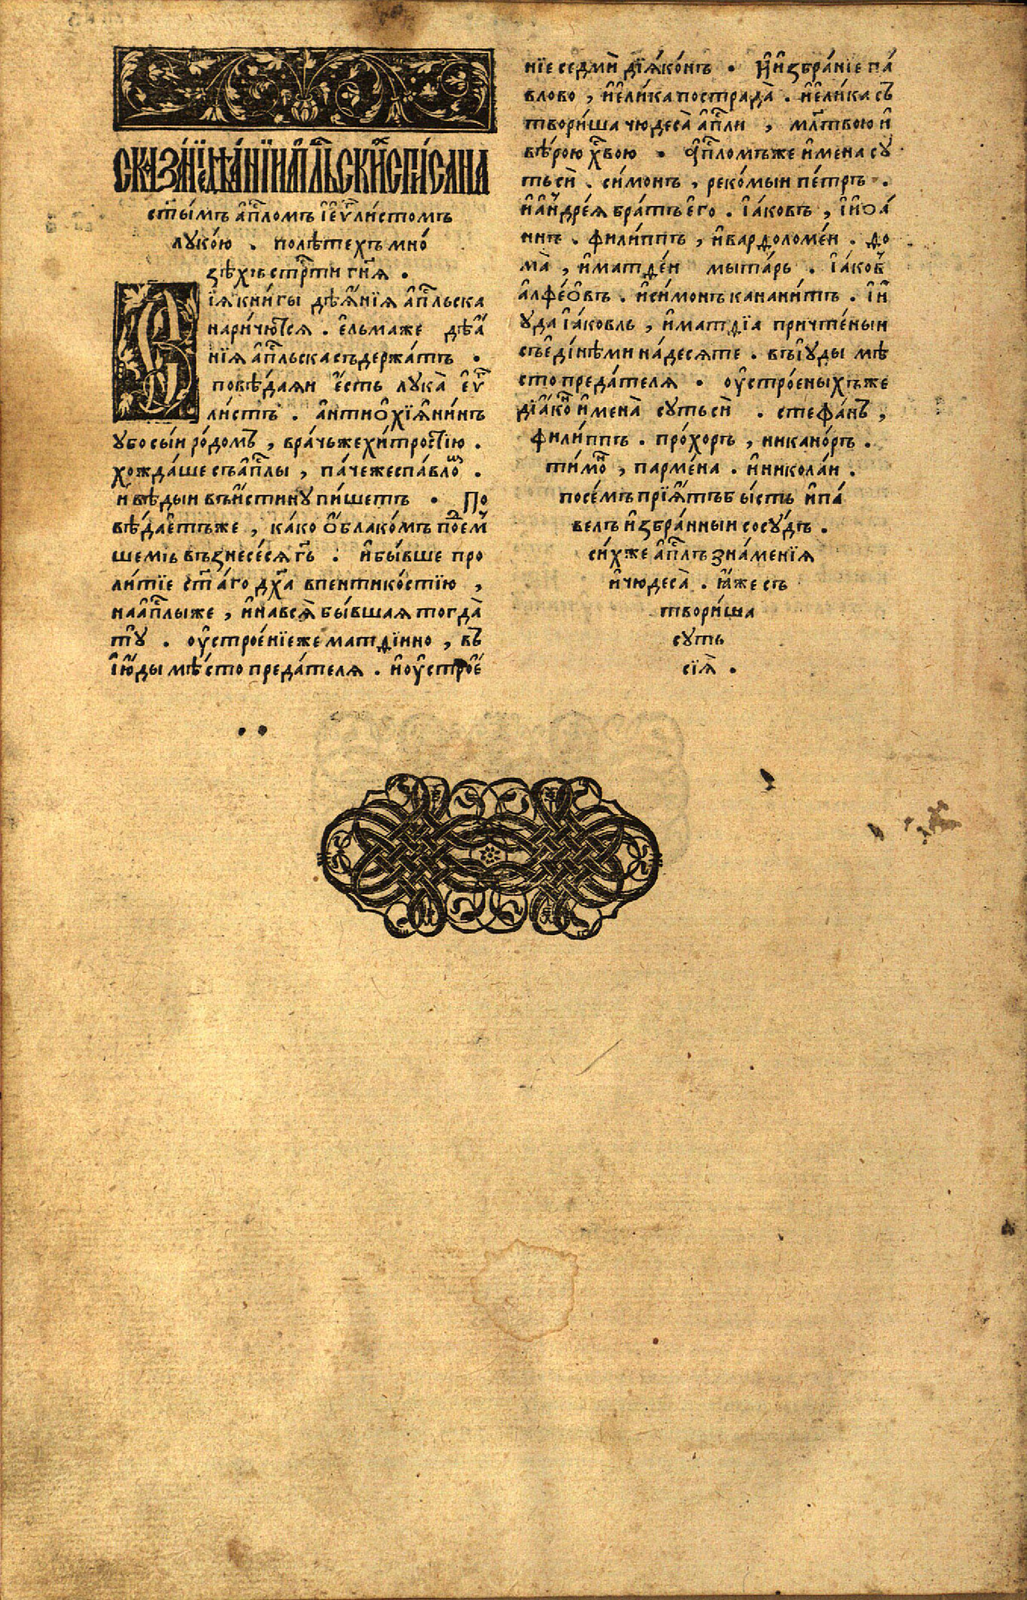 сказанїѐ дѣанїи ап҃льски́х списана
ст҃ы́мъ а҆п҃ломъ і҆ є҆ѵ҃ли́стомъ
луко́ю . полѣ́техъ мно́
зѣхъ стр҃ти гн҃я .
Сїѧ кни́гы дѣѧ҆́нїѧ а҆п҃льска
нарича́ютсѧ . є҆льма́же дѣа҆́
нїѧ а҆п҃льска съдержа́тъ .
повѣ́даѧи є҆́сть лука̀ є҆ѵ҃
ли́стъ . а҆нтиѻхїѧ́нинъ
у҆́бо сы́и ро́домъ , вра́чьжехи́тростїю .
хожда́ше съ а҆п҃лы , па́чежеспа́вло .
и҆ вѣ́дыи въи҆́стину пи́шетъ . По
вѣда́етъже , ка́ко ѻ҆́блакомъ по̀ем
шемїь възнесе́сѧ гь҃ . и҆ бы́вше про
ли́тїе ст҃а́го дх҃а впентико́стїю ,
на а҆п҃лыже , и҆ на всѧ̀ бы́вшаѧ тогда̀
тꙋ̀ . ѹ҆строе́нїеже матѳі́ино , въ
і҆ю́ды мѣ́сто преда́телѧ . и҆ ѹ҆строе́
нїе седмѝ дїѧ́конъ . и҆ и҆збра́нїе па́
влово , и҆ є҆ли́ка пострада̀ . и҆ є҆ли́ка съ
твори́ша чюдеса̀ а҆п҃ли , мл҃твою и҆
вѣ́рою хв҃ою . а҆п҃ломъже и҆мена̀ су
ть сѝ . си́монъ , реко́мыи пе́тръ .
и҆ а҆ндре́ѧ бра́тъ е҆го̀ . і҆а́ковъ , і҆ и҆ѻа́
ннъ . фили́ппъ , и҆ вардоломе́и . ѳо
ма̀ , и҆ матѳе́и мыта́рь . і҆а́ковъ
а҆лфе́ѻвъ . и҆ си́монъ канани́тъ . і҆ и҆
у́да і҆а́ковль , и҆ матѳі́а причте́ныи
съедіно́ми на́десѧте . въ і҆у́ды мѣ́
сто преда́телѧ . ѹ҆строе́ныхъже
дїа́конъ и҆мена̀ су́ть сѝ . стефа́нъ ,
фили́ппъ . про́хоръ , никано́ръ .
ти́монъ , парме́на . и҆ никола́и .
посе́мъ прїѧ́тъ бы́сть и҆ па́
велъ и҆збра́нныи сосу́дъ .
си́хже а҆п҃лъ зна́менїѧ
и҆ чюдеса̀ . ꙗ҆́же съ
твори́ша
суть
сїѧ̀ .